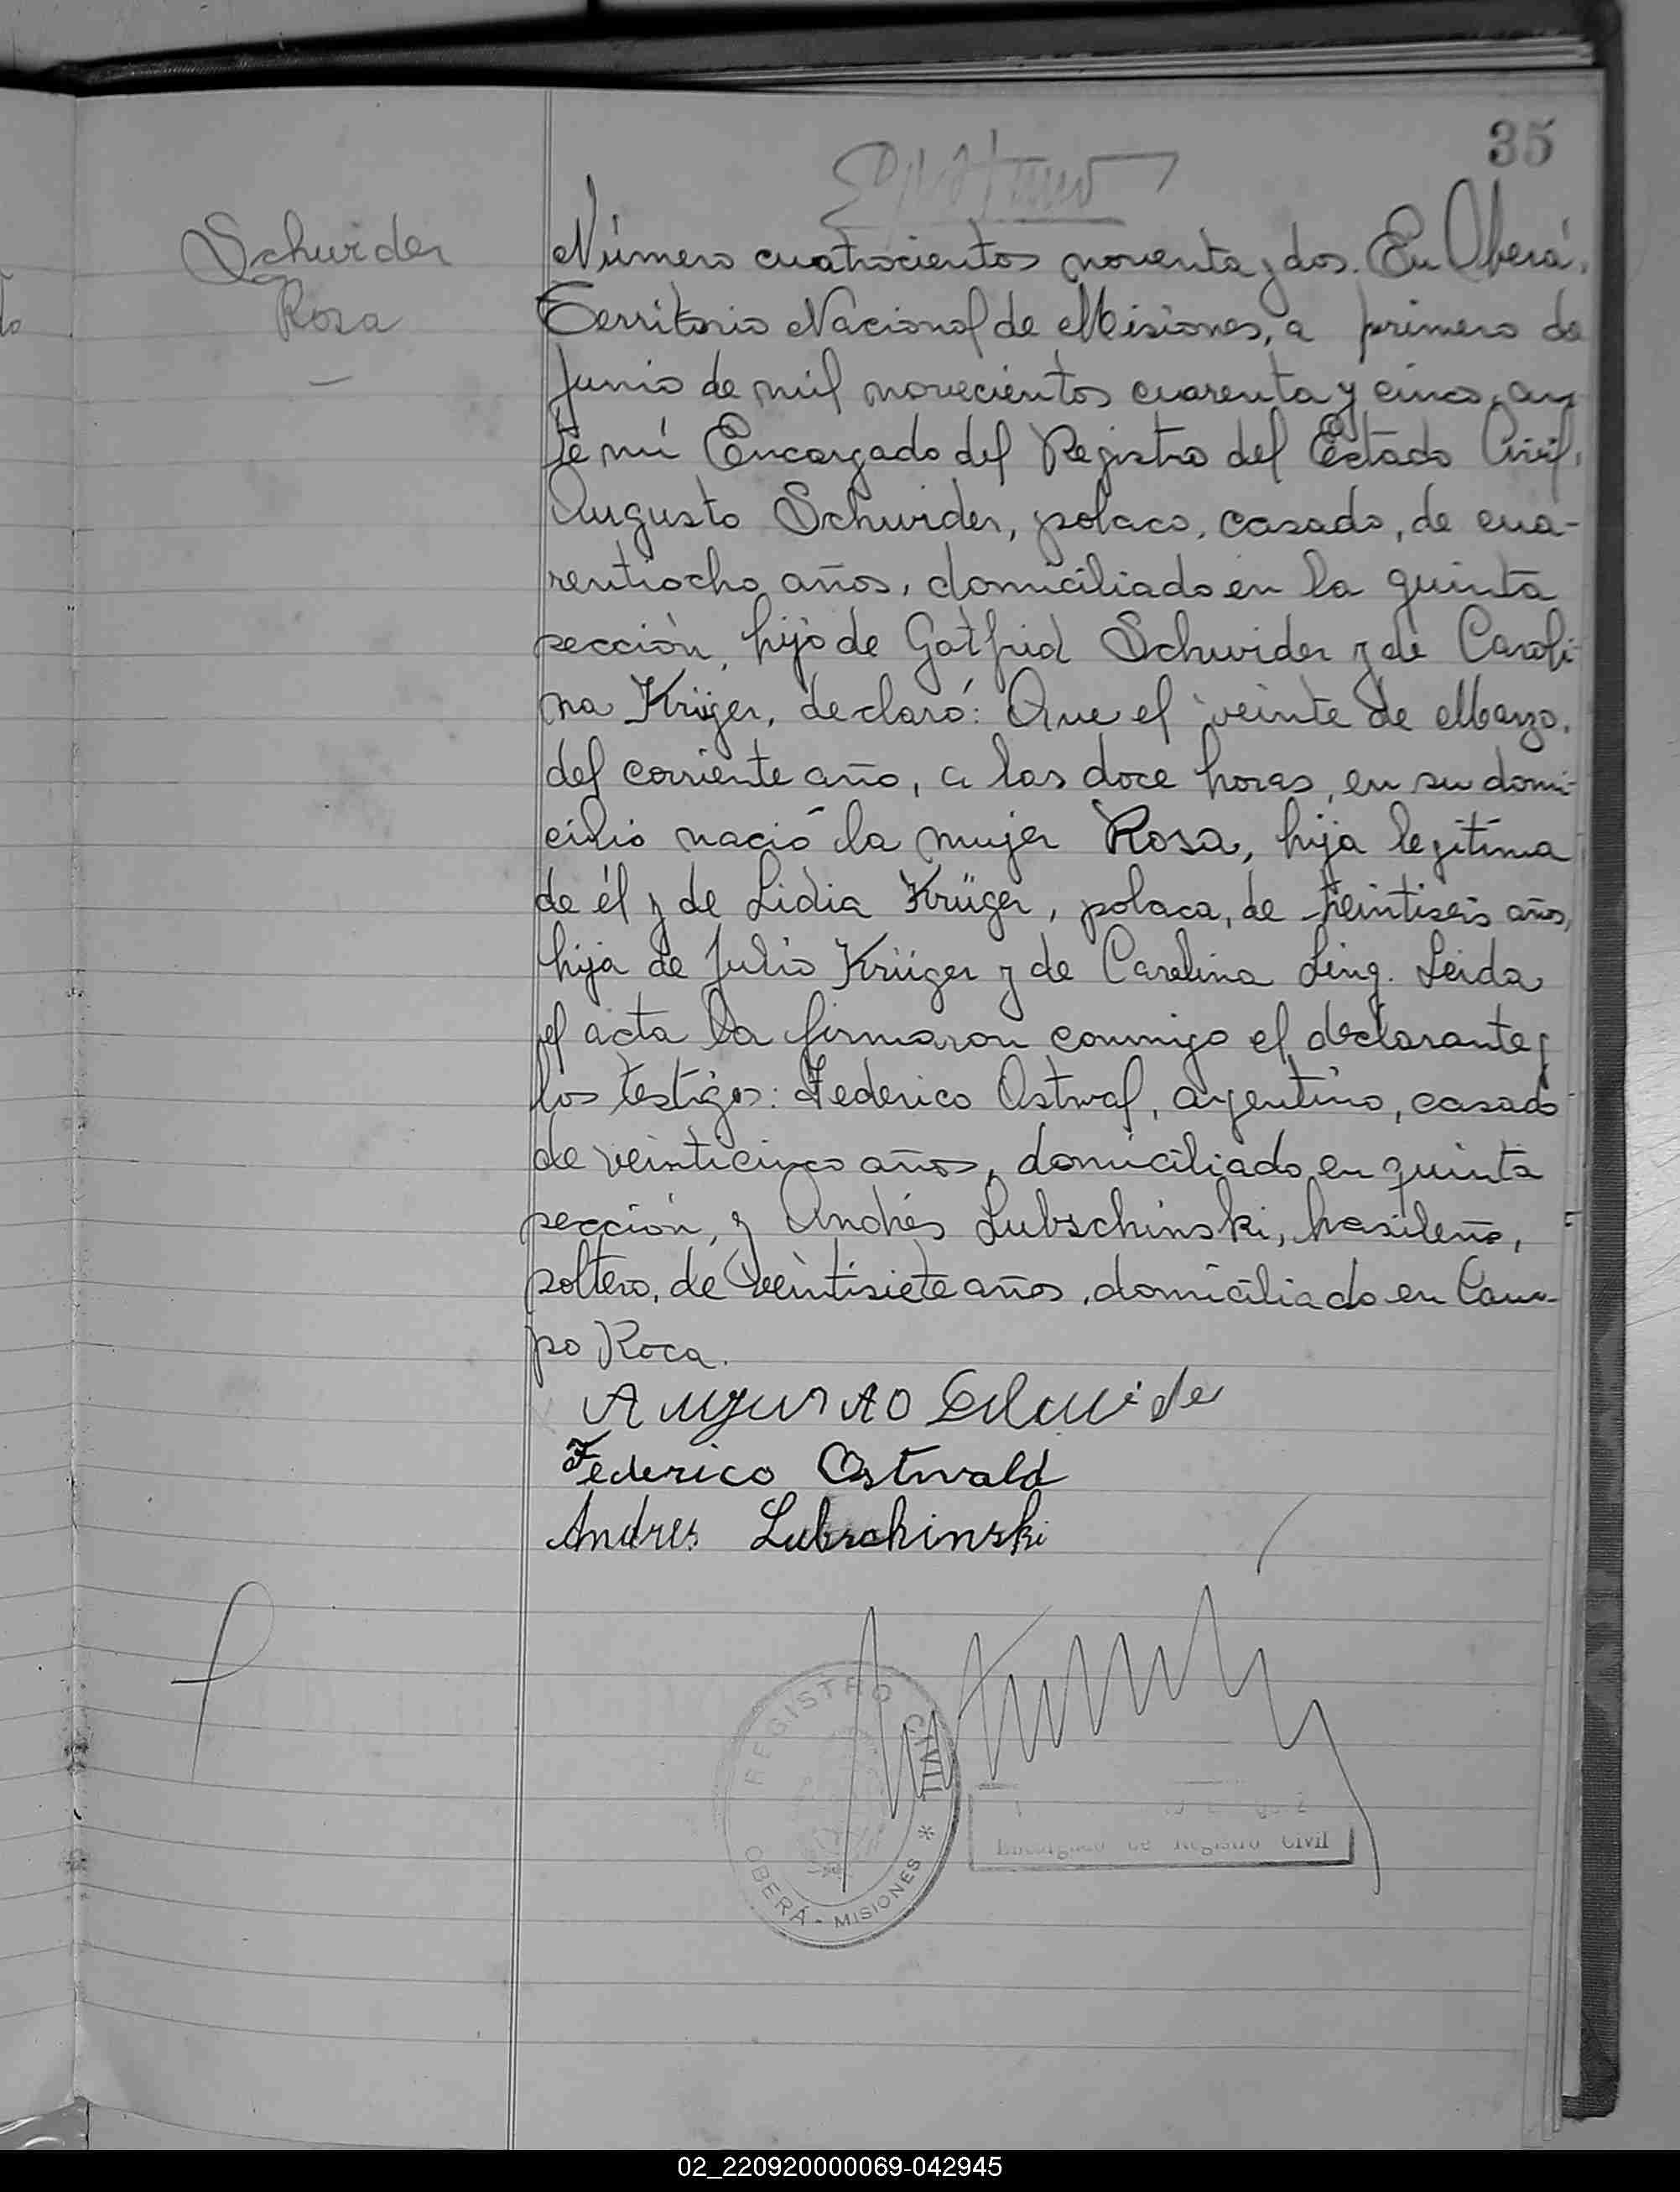 35
Schwider
Rosa
Número cuatrocientos noventa y dos. En Oberá,
Territorio Nacional de Misiones, a primero de
Junio de mil novecientos cuarenta y cinco, an
te mí Encargado del Registro del Estado Civil,
Augusto Schwider, polaco, casado, de cua-
rentiocho años, domiciliado en la quinta
sección, hijo de Gotfrid Schwider y de Caroli-
na Krüger, declaró: Que el veinte de Marzo
del corriente año, a las doce horas, en su domi-
cilio nació la mujer Rosa, hija legítima
de él y de Lidia Krüger, polaca, de treintiseis años,
hija de Julio Krüger y de Carolina Ling. Leida
el acta la firmaron conmigo el declarante y
los testigos: Federico Ostwal, argentino, casado
de veinticinco años, domiciliado en quinta
sección, y Andrés Lubschinski, brasileño,
soltero, de veintisiete años, domiciliado en Cam-
po Roca.
Augusto Schwider
Federico Ostwald
Andres Lubschinski
REGISTRO CIVIL *
OBERÁ - MISIONES
Encargado de Registro Civil
02_220920000069-042945